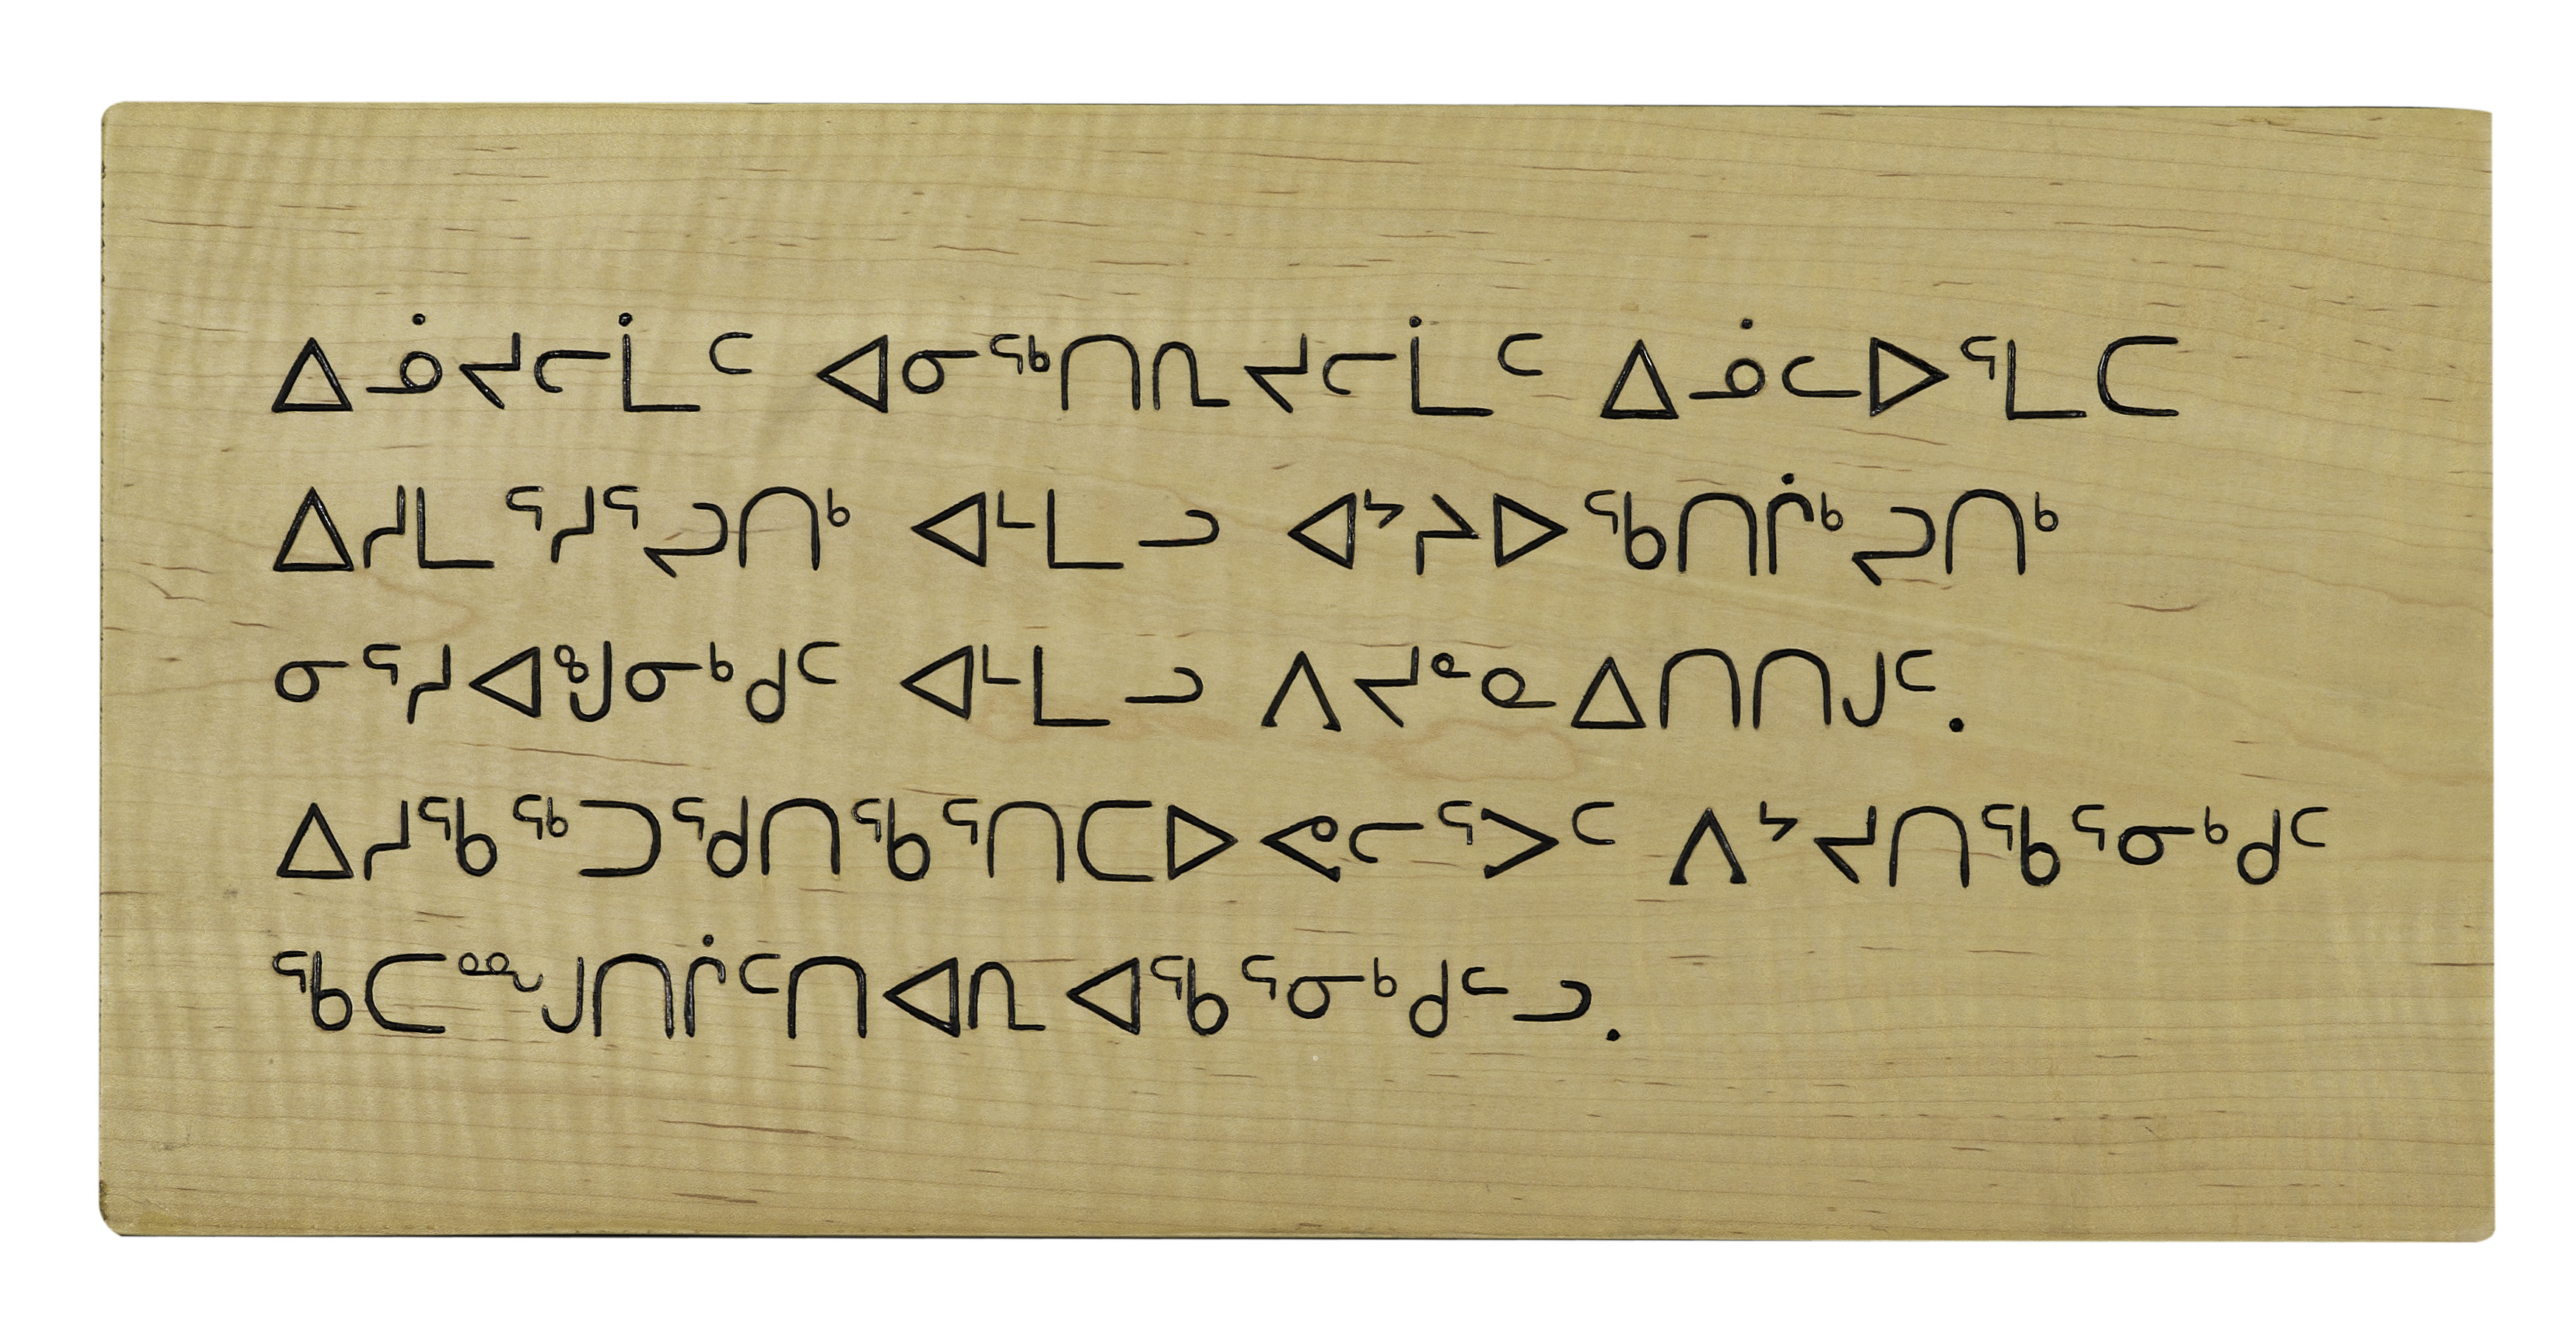 ᐃᓅᔪᓕᒫᑦ ᐊᓂᖅᑎᕆᔪᓕᒫᑦ ᐃᓅᓚᐅᕐᒪᑕ
ᐃᓱᒪᕐᓱᕐᖢᑎᒃ ᐊᒻᒪᓗ ᐊᔾᔨᐅᖃᑎᒌᒃᖢᑎᒃ
ᓂᕐᓱᐊᖑᓂᒃᑯᑦ ᐊᒻᒪᓗ ᐱᔪᓐᓇᐃᑎᑎᒍᑦ.
ᐃᓱᖃᖅᑐᖁᑎᖃᕐᑎᑕᐅᕙᓕᕐᐳᑦ ᐱᔾᔪᑎᖃᕐᓂᒃᑯᑦ
ᖃᑕᙳᑎᒌᑦᑎᐊᕆᐊᖃᕐᓂᒃᑯᓪᓗ.